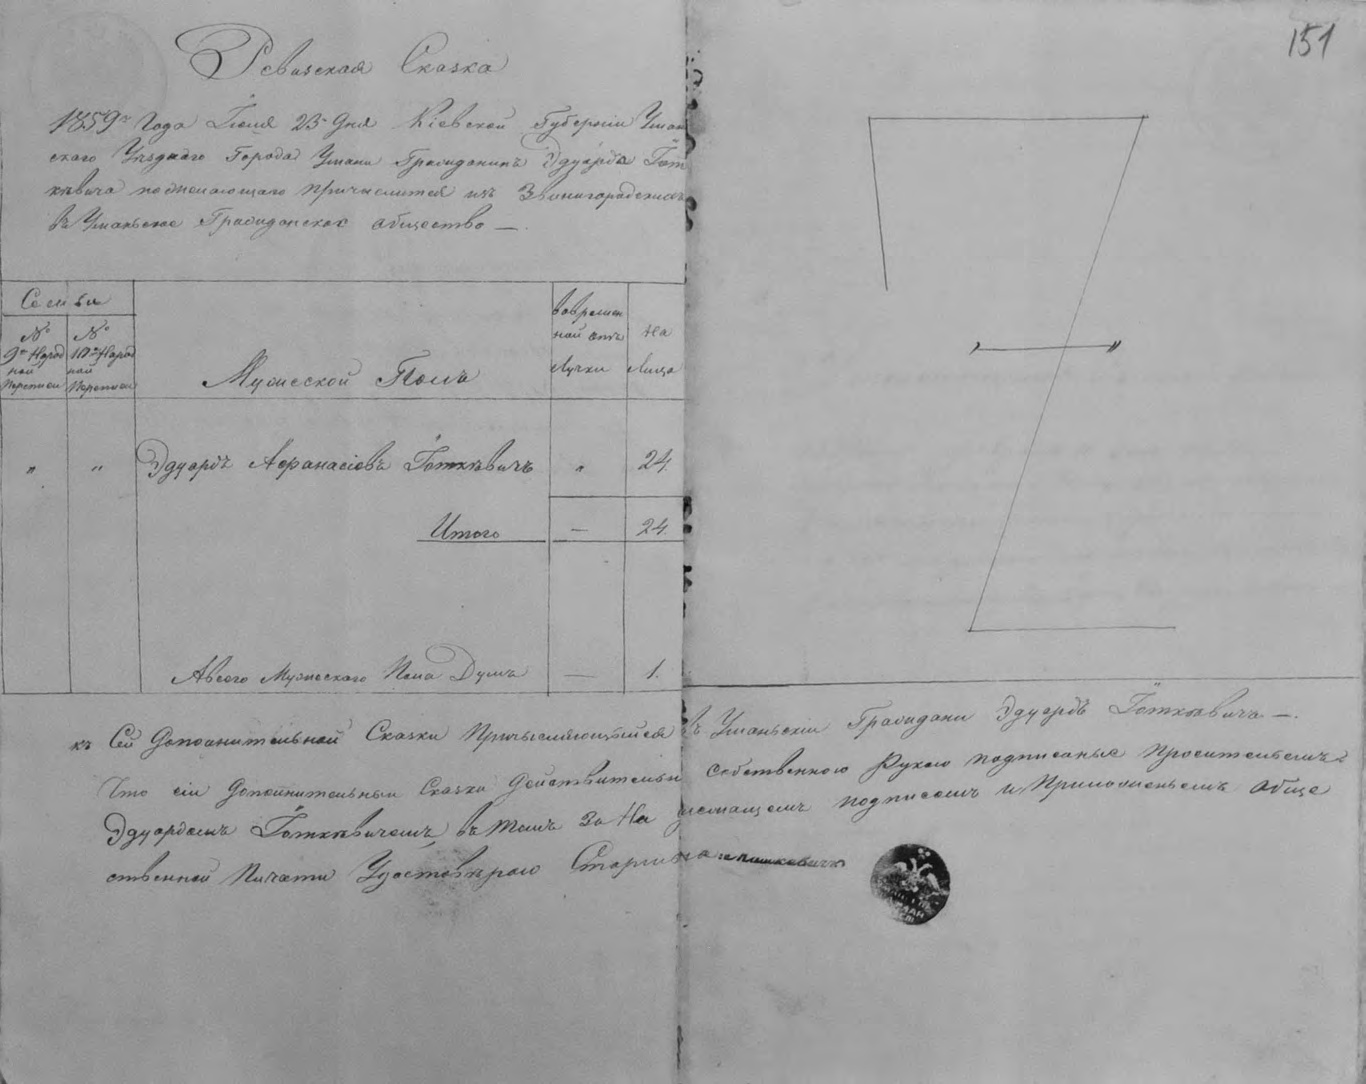 151
Ревизская Сказка
1859го Года Іюля 23 Дня Кіевской Губерніи Уман
скаго Уезднаго Города Умани Гражданинъ Эдуарда Гот
кѣвича подлежащаго причислится изъ Звенигородскихъ
въ Уманьское Гражданское общество —.
Семьи
№ 9й Народ ной Переписи
№ 10й Народ ной Переписи
Мужеской Полъ
вовремен ной отъ лучки
На Лицо
„ „ Эдуардъ Афанасіевъ Готкѣвичъ „ 24
Итого — 24
Авсего Мужескаго Пола Душъ — 1.
къ Сей Дополнительной Сказки Причысляющыйся въ Уманьскіи Граждани Эдуардъ Готкѣвичъ —.
Что сіи Дополнительныи Сказки Действительн Собственною Рукою подписаные просителемъ
Эдуардомъ Готкѣвичемъ, въ томъ За На подписомъ и Приложеньемъ обще
ственной Пичати Удостовѣряю Старшина